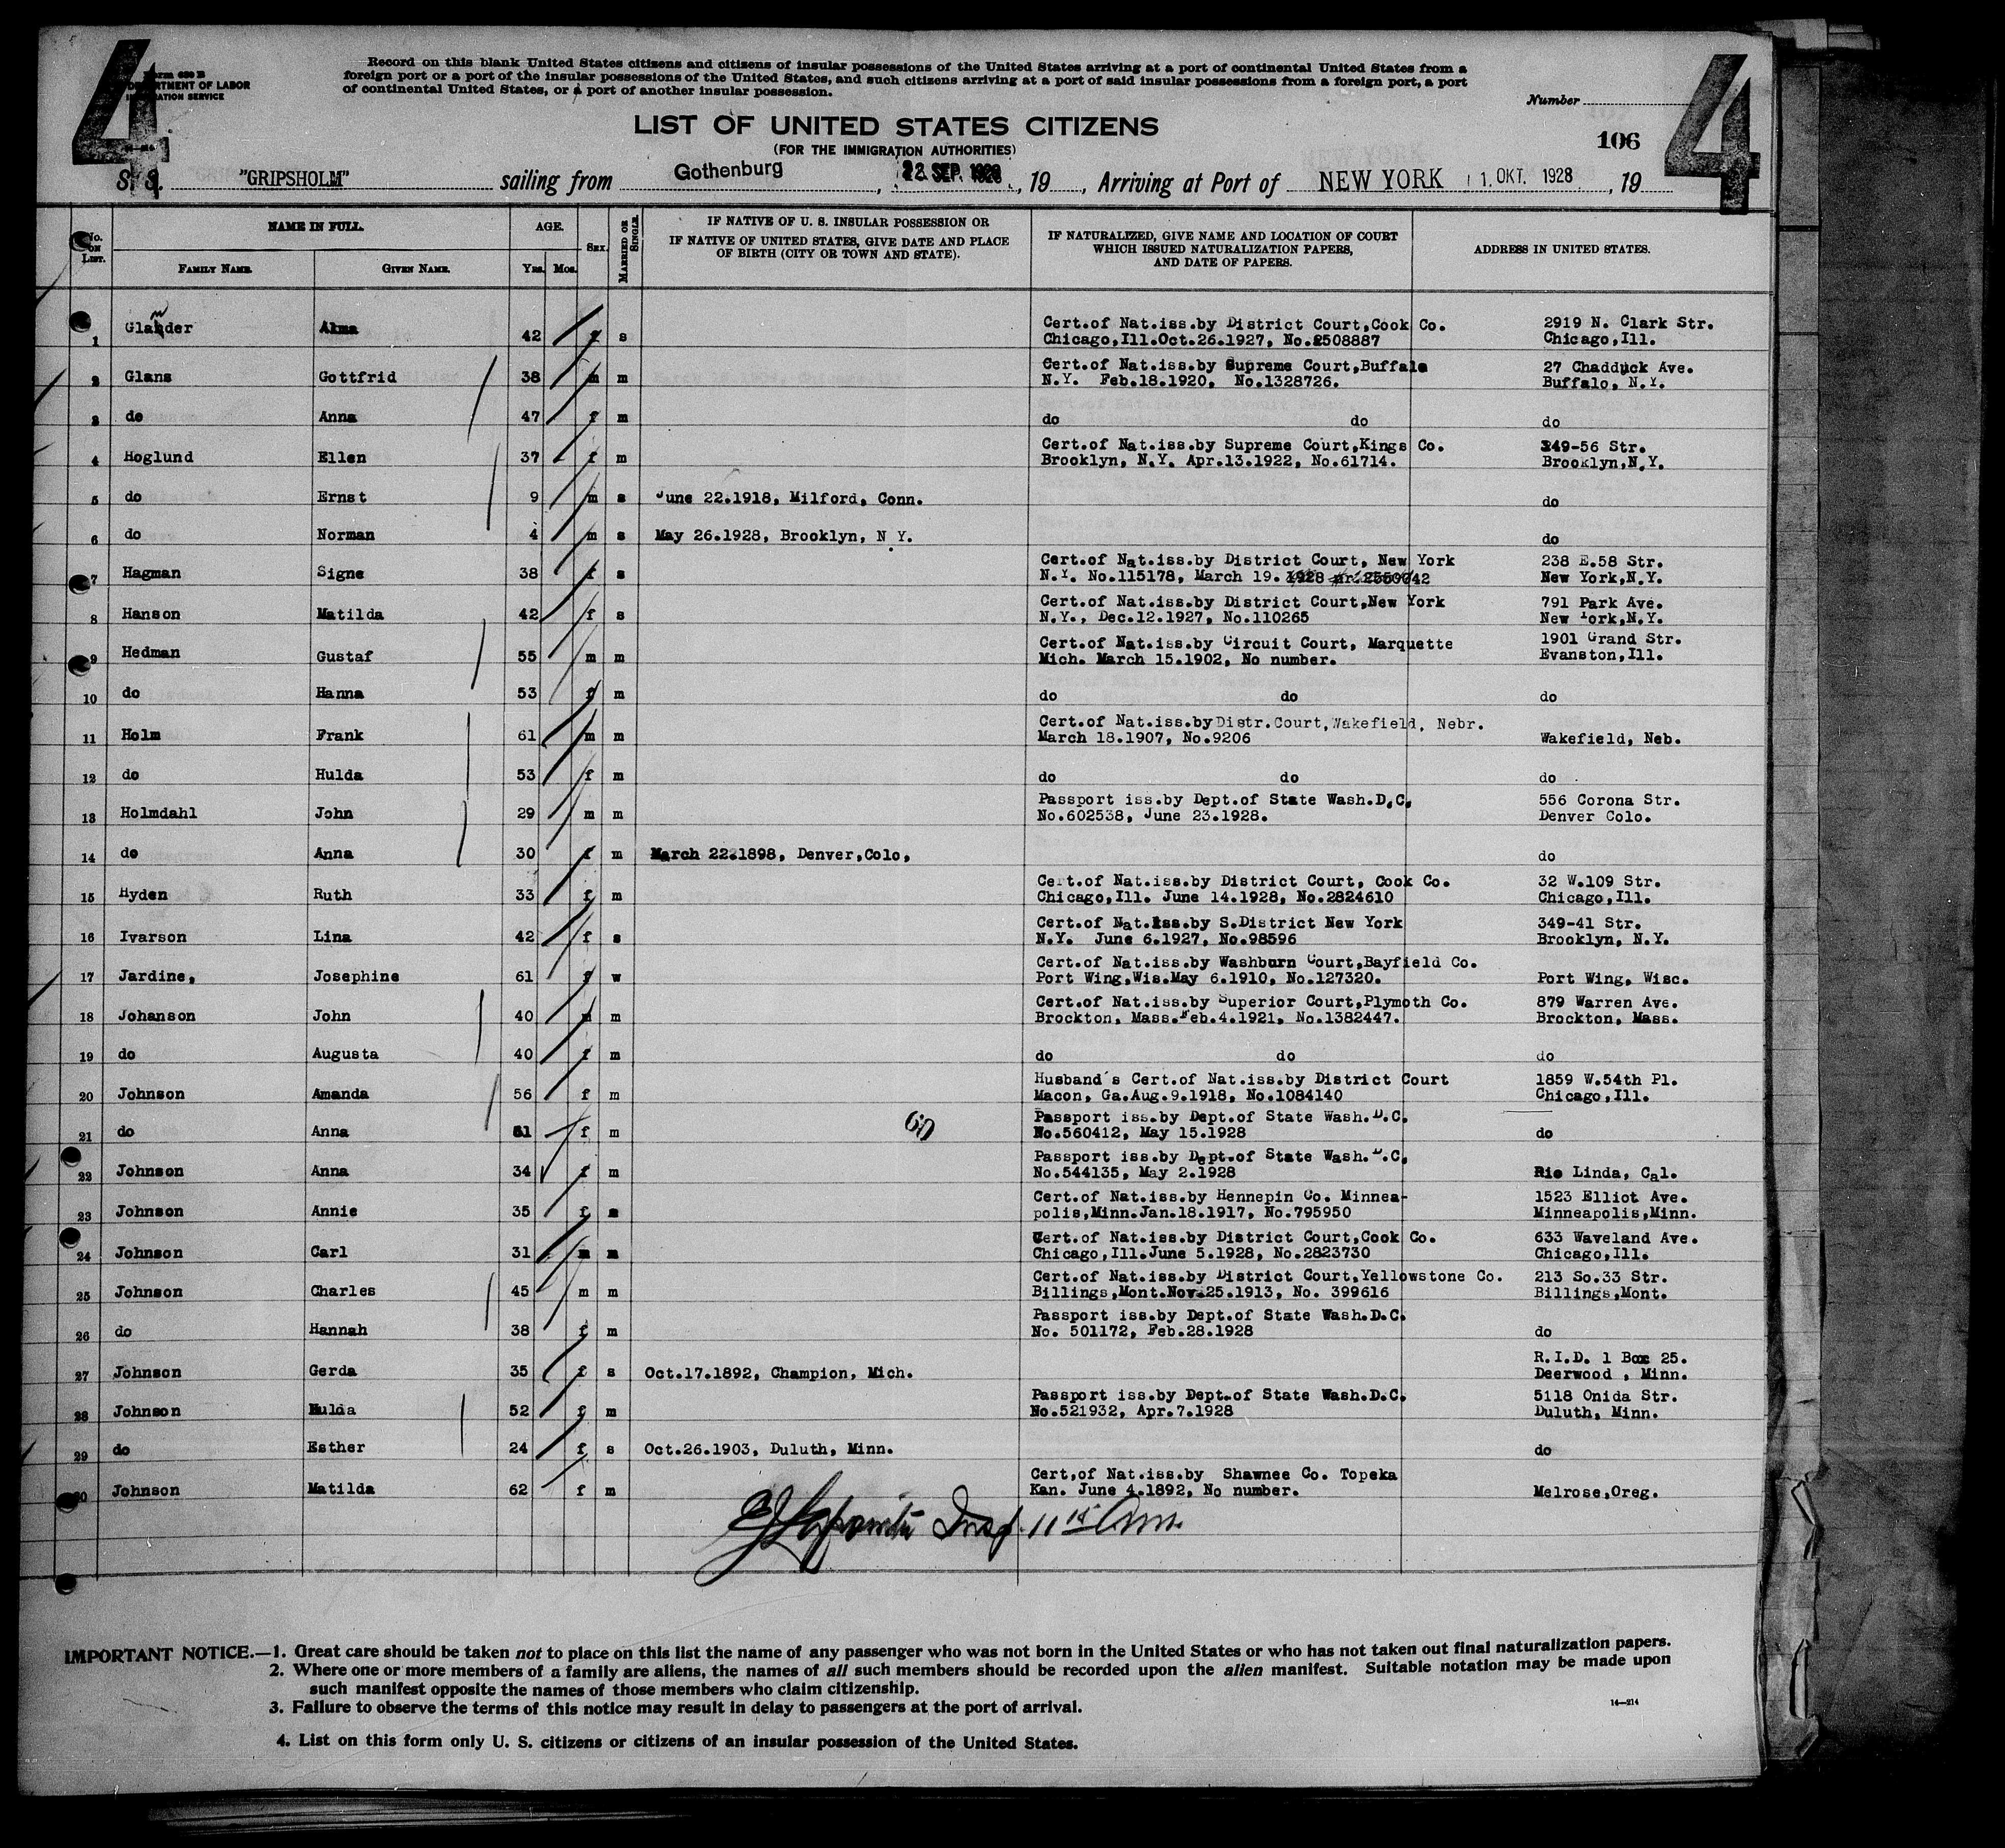 4
4
Form 630 B
DEPARTMENT OF LABOR
IMMIGRATION SERVICE
Record on this blank United States citizens and citizens of insular possessions of the United States arriving at a port of continental United States from a
foreign port or a port of the insular possessions of the United States, and such citizens arriving at a port of said insular possessions from a foreign port, a port
of continental United States, or a port of another insular possession.
Number
LIST OF UNITED STATES CITIZENS
(FOR THE IMMIGRATION AUTHORITIES)
106
S. S. "GRIPSHOLM" sailing from Gothenburg, 22. SEP. 1928, 19 , Arriving at Port of NEW YORK 1. OKT. 1928, 19
No. ON LIST. NAME IN FULL. AGE. SEX. MARRIED OR SINGLE. IF NATIVE OF U. S. INSULAR POSSESSION OR
IF NATIVE OF UNITED STATES, GIVE DATE AND PLACE
OF BIRTH (CITY OR TOWN AND STATE).
IF NATURALIZED, GIVE NAME AND LOCATION OF COURT
WHICH ISSUED NATURALIZATION PAPERS,
AND DATE OF PAPERS.
ADDRESS IN UNITED STATES.
FAMILY NAME. GIVEN NAME. YRS. MOS.
Cert.of Nat.iss.by District Court,Cook Co. 2919 N. Clark Str.
1 Glander Alma 42 f s Chicago,Ill.Oct.26.1927, No.2508887 Chicago,Ill.
Cert.of Nat.iss.by Supreme Court,Buffalo 27 Chadduck Ave.
2 Glans Gottfrid 38 m m N.Y. Feb.18.1920, No.1328726. Buffalo, N.Y.
3 do Anna 47 f m do do do
Cert.of Nat.iss.by Supreme Court,Kings Co. 349-56 Str.
4 Hoglund Ellen 37 f m Brooklyn, N.Y. Apr.13.1922, No.61714. Brooklyn,N.Y.
5 do Ernst 9 m s June 22.1918, Milford, Conn. do
6 do Norman 4 m s May 26.1928, Brooklyn, N Y. do
Cert.of Nat.iss.by District Court, New York 238 E.58 Str.
7 Hagman Signe 38 f s N.Y. No.115178, March 19. 1928 nr.2550042 New York,N.Y.
Cert.of Nat.iss.by District Court,New York 791 Park Ave.
8 Hanson Matilda 42 f s N.Y., Dec.12.1927, No.110265 New York,N.Y.
Cert.of Nat.iss.by Circuit Court, Marquette 1901 Grand Str.
9 Hedman Gustaf 55 m m Mich. March 15.1902, No number. Evanston,Ill.
10 do Hanna 53 f m do do do
Cert.of Nat.iss.by Distr.Court,Wakefield, Nebr.
11 Holm Frank 61 m m March 18.1907, No.9206 Wakefield, Neb.
12 do Hulda 53 f m do do do
Passport iss.by Dept.of State Wash.D.C. 556 Corona Str.
13 Holmdahl John 29 m m No.602538, June 23.1928. Denver Colo.
14 do Anna 30 f m March 22.1898, Denver,Colo, do
Cert.of Nat.iss.by District Court, Cook Co. 32 W.109 Str.
15 Hyden Ruth 33 f m Chicago,Ill. June 14.1928, No.2824610 Chicago,Ill.
Cert.of Nat.iss.by S.District New York 349-41 Str.
16 Ivarson Lina 42 f s N.Y. June 6.1927, No.98596 Brooklyn, N.Y.
Cert.of Nat.iss.by Washburn Court,Bayfield Co.
17 Jardine, Josephine 61 f w Port Wing,Wis.May 6.1910, No.127320. Port Wing, Wisc.
Cert.of Nat.iss.by Superior Court,Plymoth Co. 879 Warren Ave.
18 Johanson John 40 m m Brockton, Mass.Feb.4.1921, No.1382447. Brockton, Mass.
19 do Augusta 40 f m do do do
Husband's Cert.of Nat.iss.by District Court 1859 W.54th Pl.
20 Johnson Amanda 56 f m Macon, Ga.Aug.9.1918, No.1084140 Chicago,Ill.
60 Passport iss.by Dept.of State Wash.D.C.
21 do Anna f m No.560412, May 15.1928 do
Passport iss.by Dept.of State Wash.D.C.
22 Johnson Anna 34 f m No.544135, May 2.1928 Rio Linda, Cal.
Cert.of Nat.iss.by Hennepin Co. Minnea- 1523 Elliot Ave.
23 Johnson Annie 35 f s polis,Minn.Jan.18.1917, No.795950 Minneapolis,Minn.
Cert.of Nat.iss.by District Court,Cook Co. 633 Waveland Ave.
24 Johnson Carl 31 m m Chicago,Ill.June 5.1928, No.2823730 Chicago,Ill.
Cert.of Nat.iss.by District Court,Yellowstone Co. 213 So.33 Str.
25 Johnson Charles 45 m m Billings,Mont.Nov.25.1913, No. 399616 Billings,Mont.
Passport iss.by Dept.of State Wash.D.C.
26 do Hannah 38 f m No. 501172, Feb.28.1928 do
R.I.D. 1 Box 25.
27 Johnson Gerda 35 f s Oct.17.1892, Champion, Mich. Deerwood , Minn.
Passport iss.by Dept.of State Wash.D.C. 5118 Onida Str.
28 Johnson Hulda 52 f m No.521932, Apr.7.1928 Duluth, Minn.
29 do Esther 24 f s Oct.26.1903, Duluth, Minn. do
Cert,of Nat.iss.by Shawnee Co. Topeka
30 Johnson Matilda 62 f m Kan. June 4.1892, No number. Melrose,Oreg.
Insp.
IMPORTANT NOTICE.—1. Great care should be taken not to place on this list the name of any passenger who was not born in the United States or who has not taken out final naturalization papers.
2. Where one or more members of a family are aliens, the names of all such members should be recorded upon the alien manifest. Suitable notation may be made upon
such manifest opposite the names of those members who claim citizenship.
3. Failure to observe the terms of this notice may result in delay to passengers at the port of arrival.
14—214
4. List on this form only U. S. citizens or citizens of an insular possession of the United States.